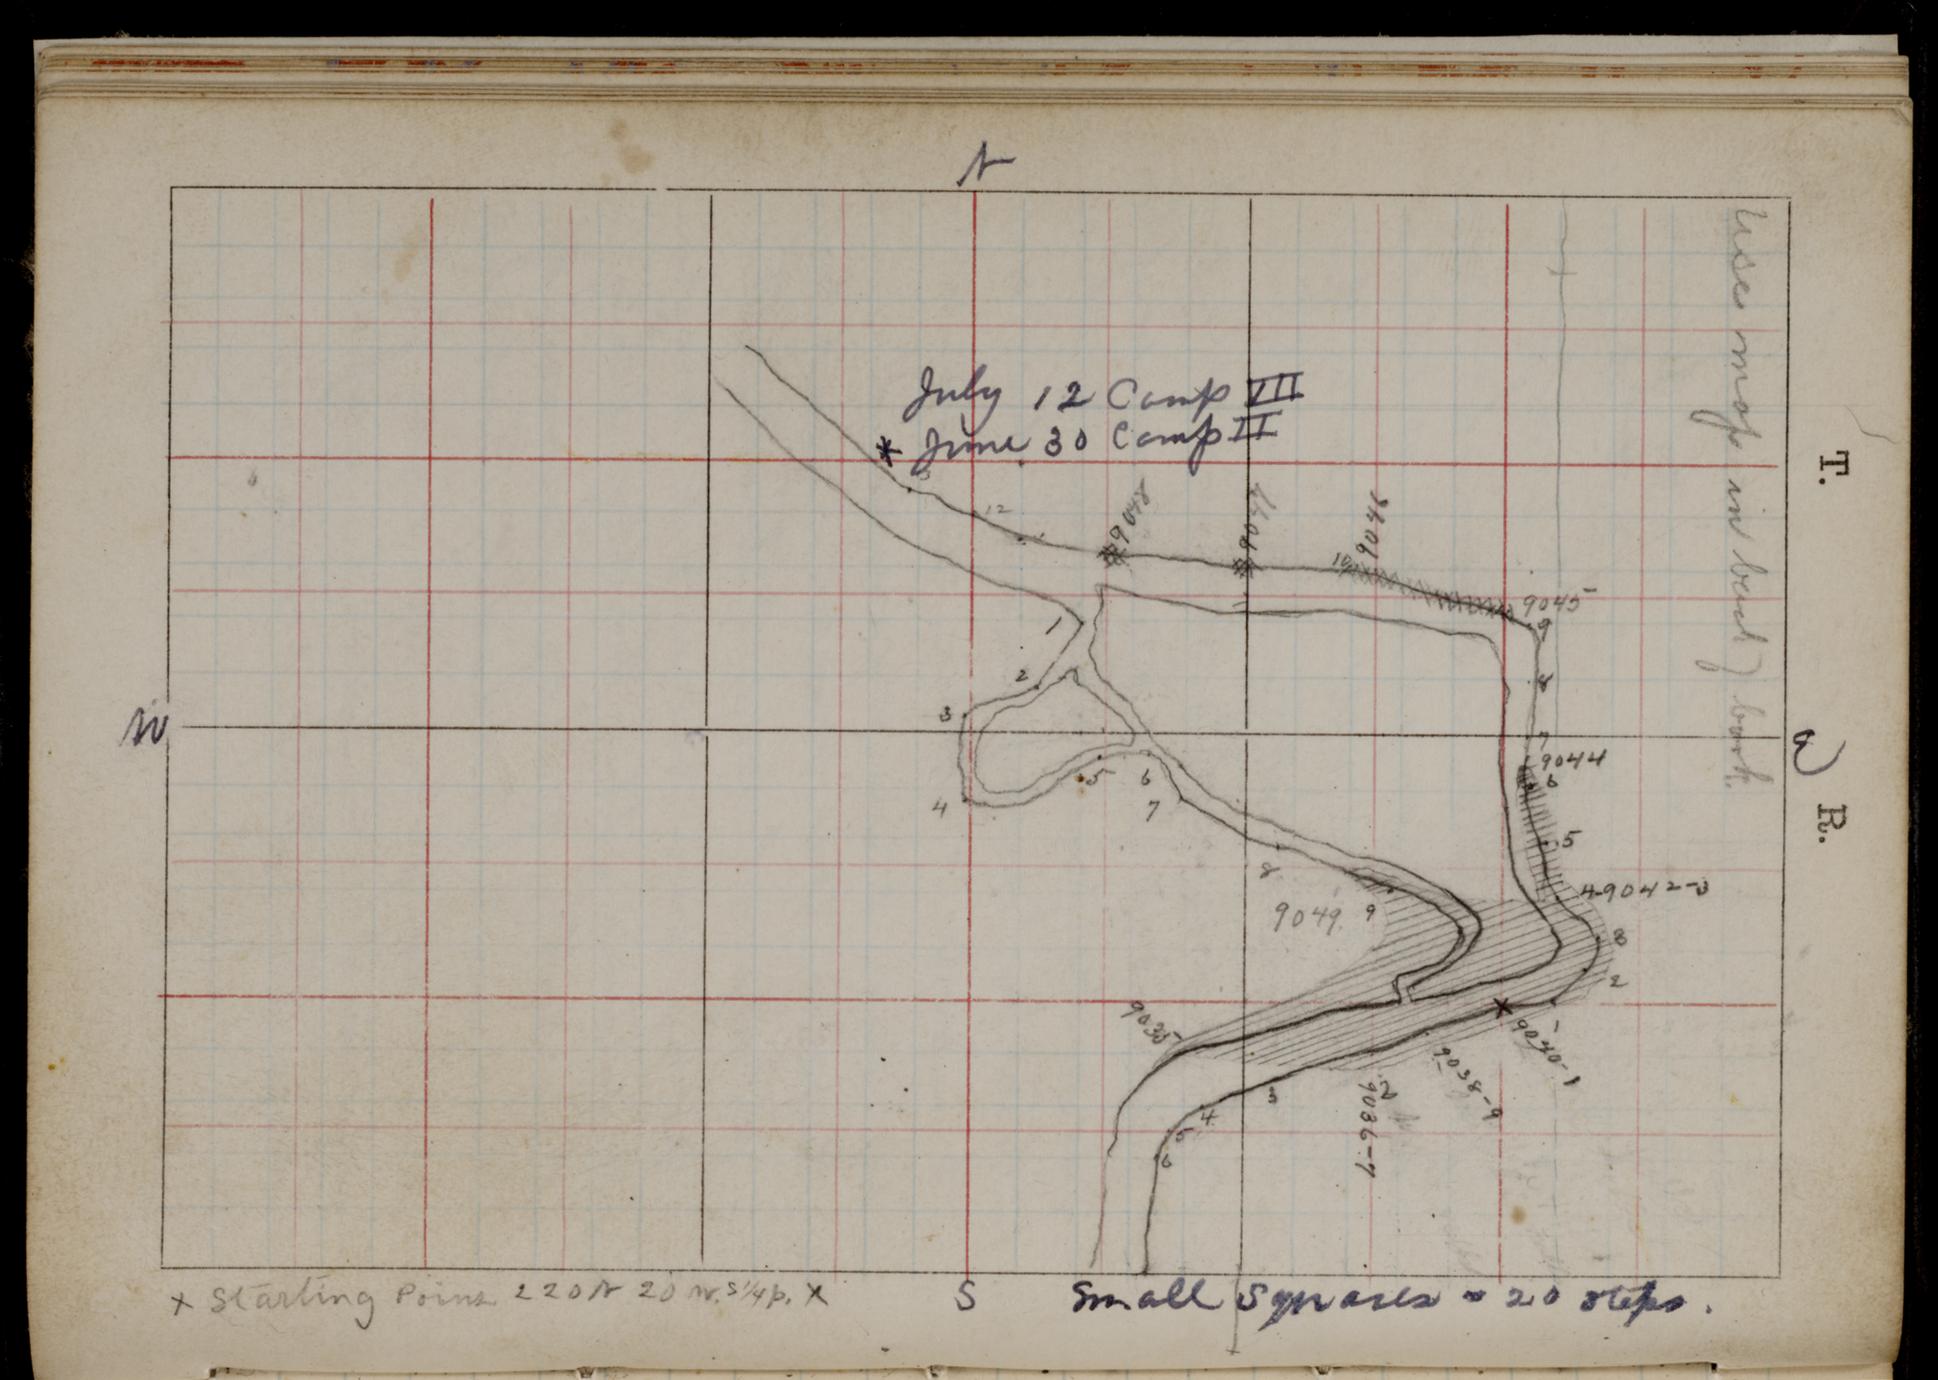 N
July 12 Camp VII
* June 30 Camp II
12
9048
9047
9046
10
9045
9
8
7
9044
6
5
4-9042-3
3
2
1
9040-1
9038-9
2
9036-7
3
4
5
6
9035
1
2
3
4
5
6
7
8
9
9049
W
T.
R.
Use map in back) book.
x Starting Point 220 N 20 W. S 1/4 p. x
S
Small Squares = 20 steps.